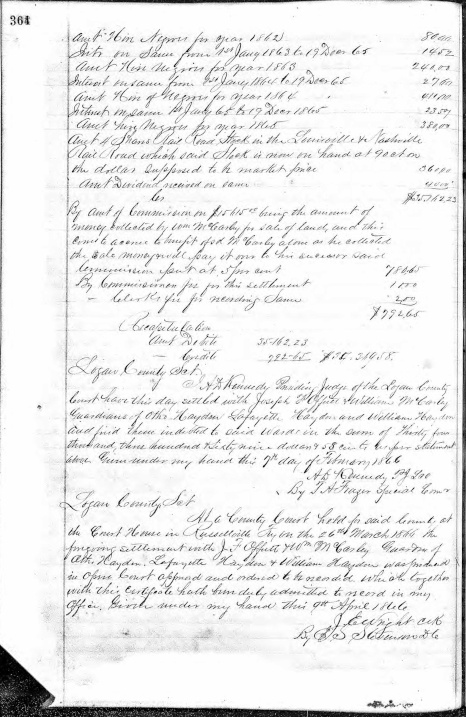 364
Amt Hire Negroes for year 1862 80.00
Ints on Same from 1st Jany 1863 to 19 Decr 65 14.52
Amt Hire Negroes for year 1863 240.00
Interest on same from 1st Jany 1864 to 19 Decr 65
Amt Hire of Negroes for year 1864
Interest on same 1st Jany 65 to 19 Decr 1865
Amt Hire Negroes for year 1865
Amt 4 Shares Rail Road Stock in the Louisville & Nashville
Rail Road which said Stock is now on hand at 90 cts on
the dollar supposed to be market price
Amt Dividend received on same
Cr
By Amt of Commission on being the amount of
money collected by Wm McCarley for sale of land, and this
coms to accrue to benefit of sd McCarley alone as he collected
the sale money & will pay it over to his successor said
Commission put at 5 per cent
By Commissioner fee for this settlement
" Clerks fee for recording Same 2.50
$792.65
Recapitulation
Amt Debits 35162.23
" Credits 792.65
Logan County Sct
I A B Kennedy Presiding Judge of the Logan County
Court have this day settled with Joseph F Offutt & William McCarley
Guardians of Othr Hayden Lafayette Hayden and William Hayden
and find them indebted to said wards in the sum of Thirty four
thousand, three hundred & sixty nine dollars & 58 cents as per statement
above Given under my hand this 7th day of February 1866
A B Kennedy PJ
By T H Frazer Special Comr
Logan County Sct
At a County Court held for said County at
the Court House in Russellville Ky on the 26th March 1866 the
foregoing settlement with J F Offutt & Wm McCarley Guardians of
Hayden, Lafayette Hayden & William Hayden was produced
in Open Court approved and ordered to be recorded which together
with this certificate hath been duly admitted to record in my
Office, Given under my hand this 9th April 1866
Wright Clk
By Stevenson DC